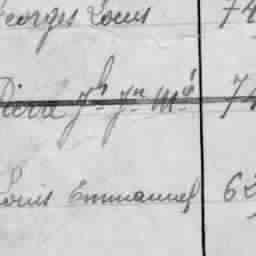 Georges Louis 74
Pierre Jh Jn Mé 74
Louis Emmanuel 62